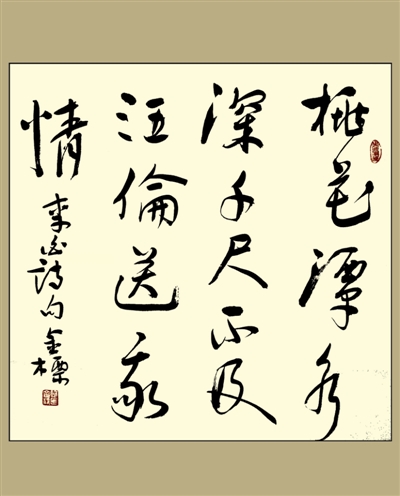 桃花潭水
深千尺不及
汪倫送我
情
李白詩句金標